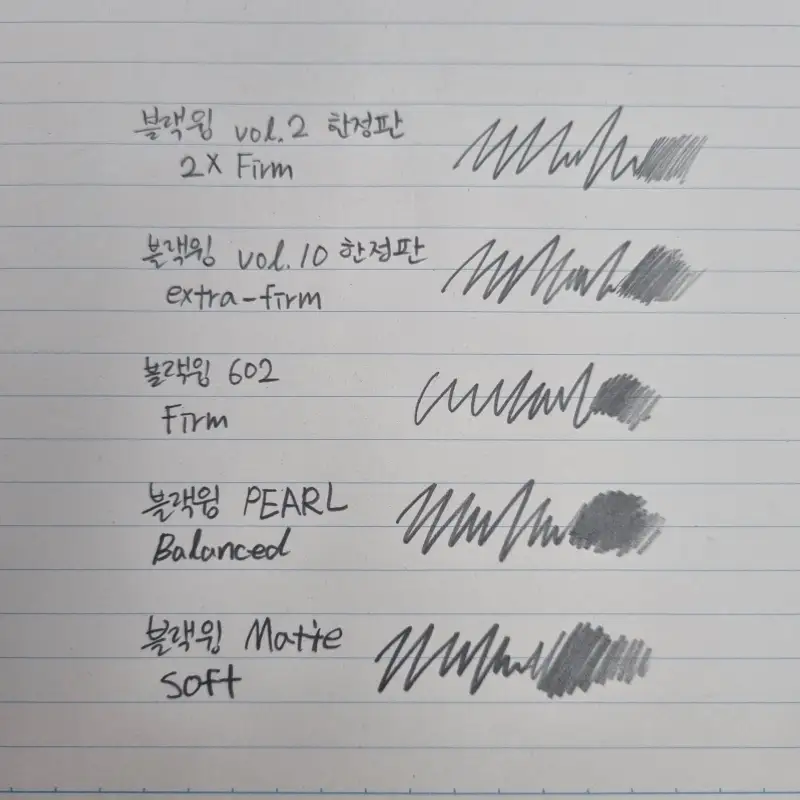 블랙윙 vol.2 한정판
2X Firm
블랙윙 vol.10 한정판
extra-firm
블랙윙 602
Firm
블랙윙 PEARL
Balanced
블랙윙 Matte
soft